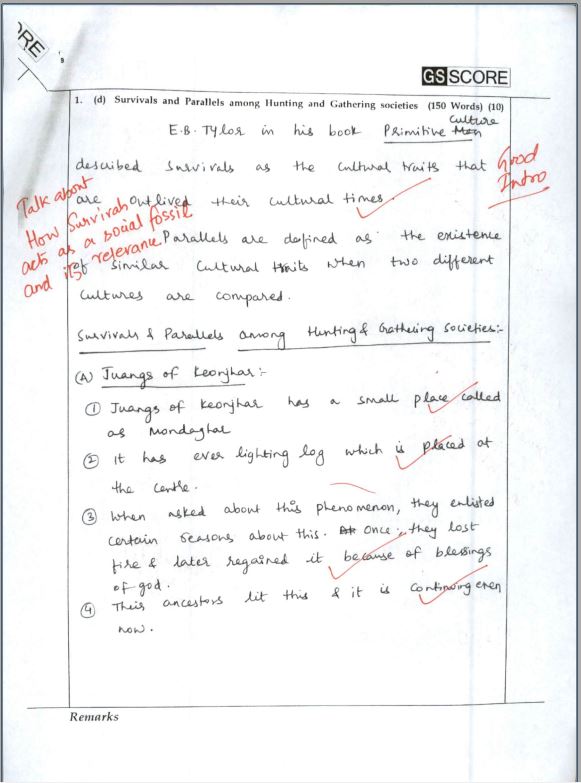 ORE
GS SCORE
1. (d) Survivals and Parallels among Hunting and Gathering societies (150 Words) (10)
E.B. Tylor in his book Primitive Culture
described survivals as the cultural traits that
are outlived their cultural times.
Good
Intro
Talk about
How Survivals
acts as a social fossil
and its relevance
Parallels are defined as the existence
of similar cultural traits when two different
cultures are compared.
Survivals & Parallels among Hunting & Gathering Societies:-
(A) Juangs of Keonjhar:-
① Juangs of Keonjhar has a small place called
as Mondaghar
② It has ever lighting log which is placed at
the centre.
③ When asked about this phenomenon, they enlisted
certain reasons about this. Once, they lost
fire & later regained it because of blessings
of god.
④ Their ancestors lit this & it is continuing even
now.
Remarks